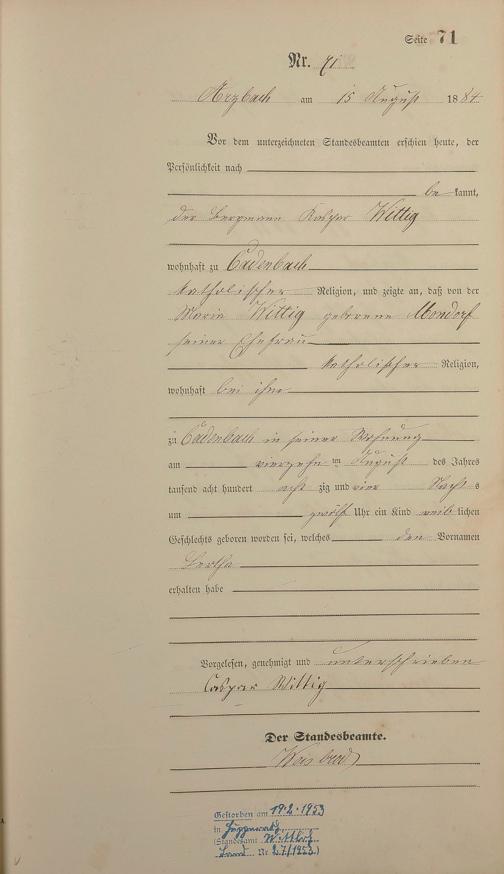 Seite 71
Nr. 71
Arzbach am 15 August 1884
Vor dem unterzeichneten Standesbeamten erschien heute, der
Persönlichkeit nach
be kannt,
der Bergmann Kaspar Wittig
wohnhaft zu Cadenbach
katholischer Religion, und zeigte an, daß von der
Maria Wittig geborene Mondorf
seiner Ehefrau
katholischer Religion,
wohnhaft bei ihm
zu Cadenbach in seiner Wohnung
am vierzehn ten August des Jahres
tausend acht hundert acht zig und vier Nacht s
um zwölf Uhr ein Kind weib lichen
Geschlechts geboren worden sei, welches den Vornamen
Bertha
erhalten habe
Vorgelesen, genehmigt und unterschrieben
Caspar Wittig
Der Standesbeamte.
Weisbrod
Gestorben am 19.2.1953
in
(Standesamt Wittlich
Land Nr 27/1953)